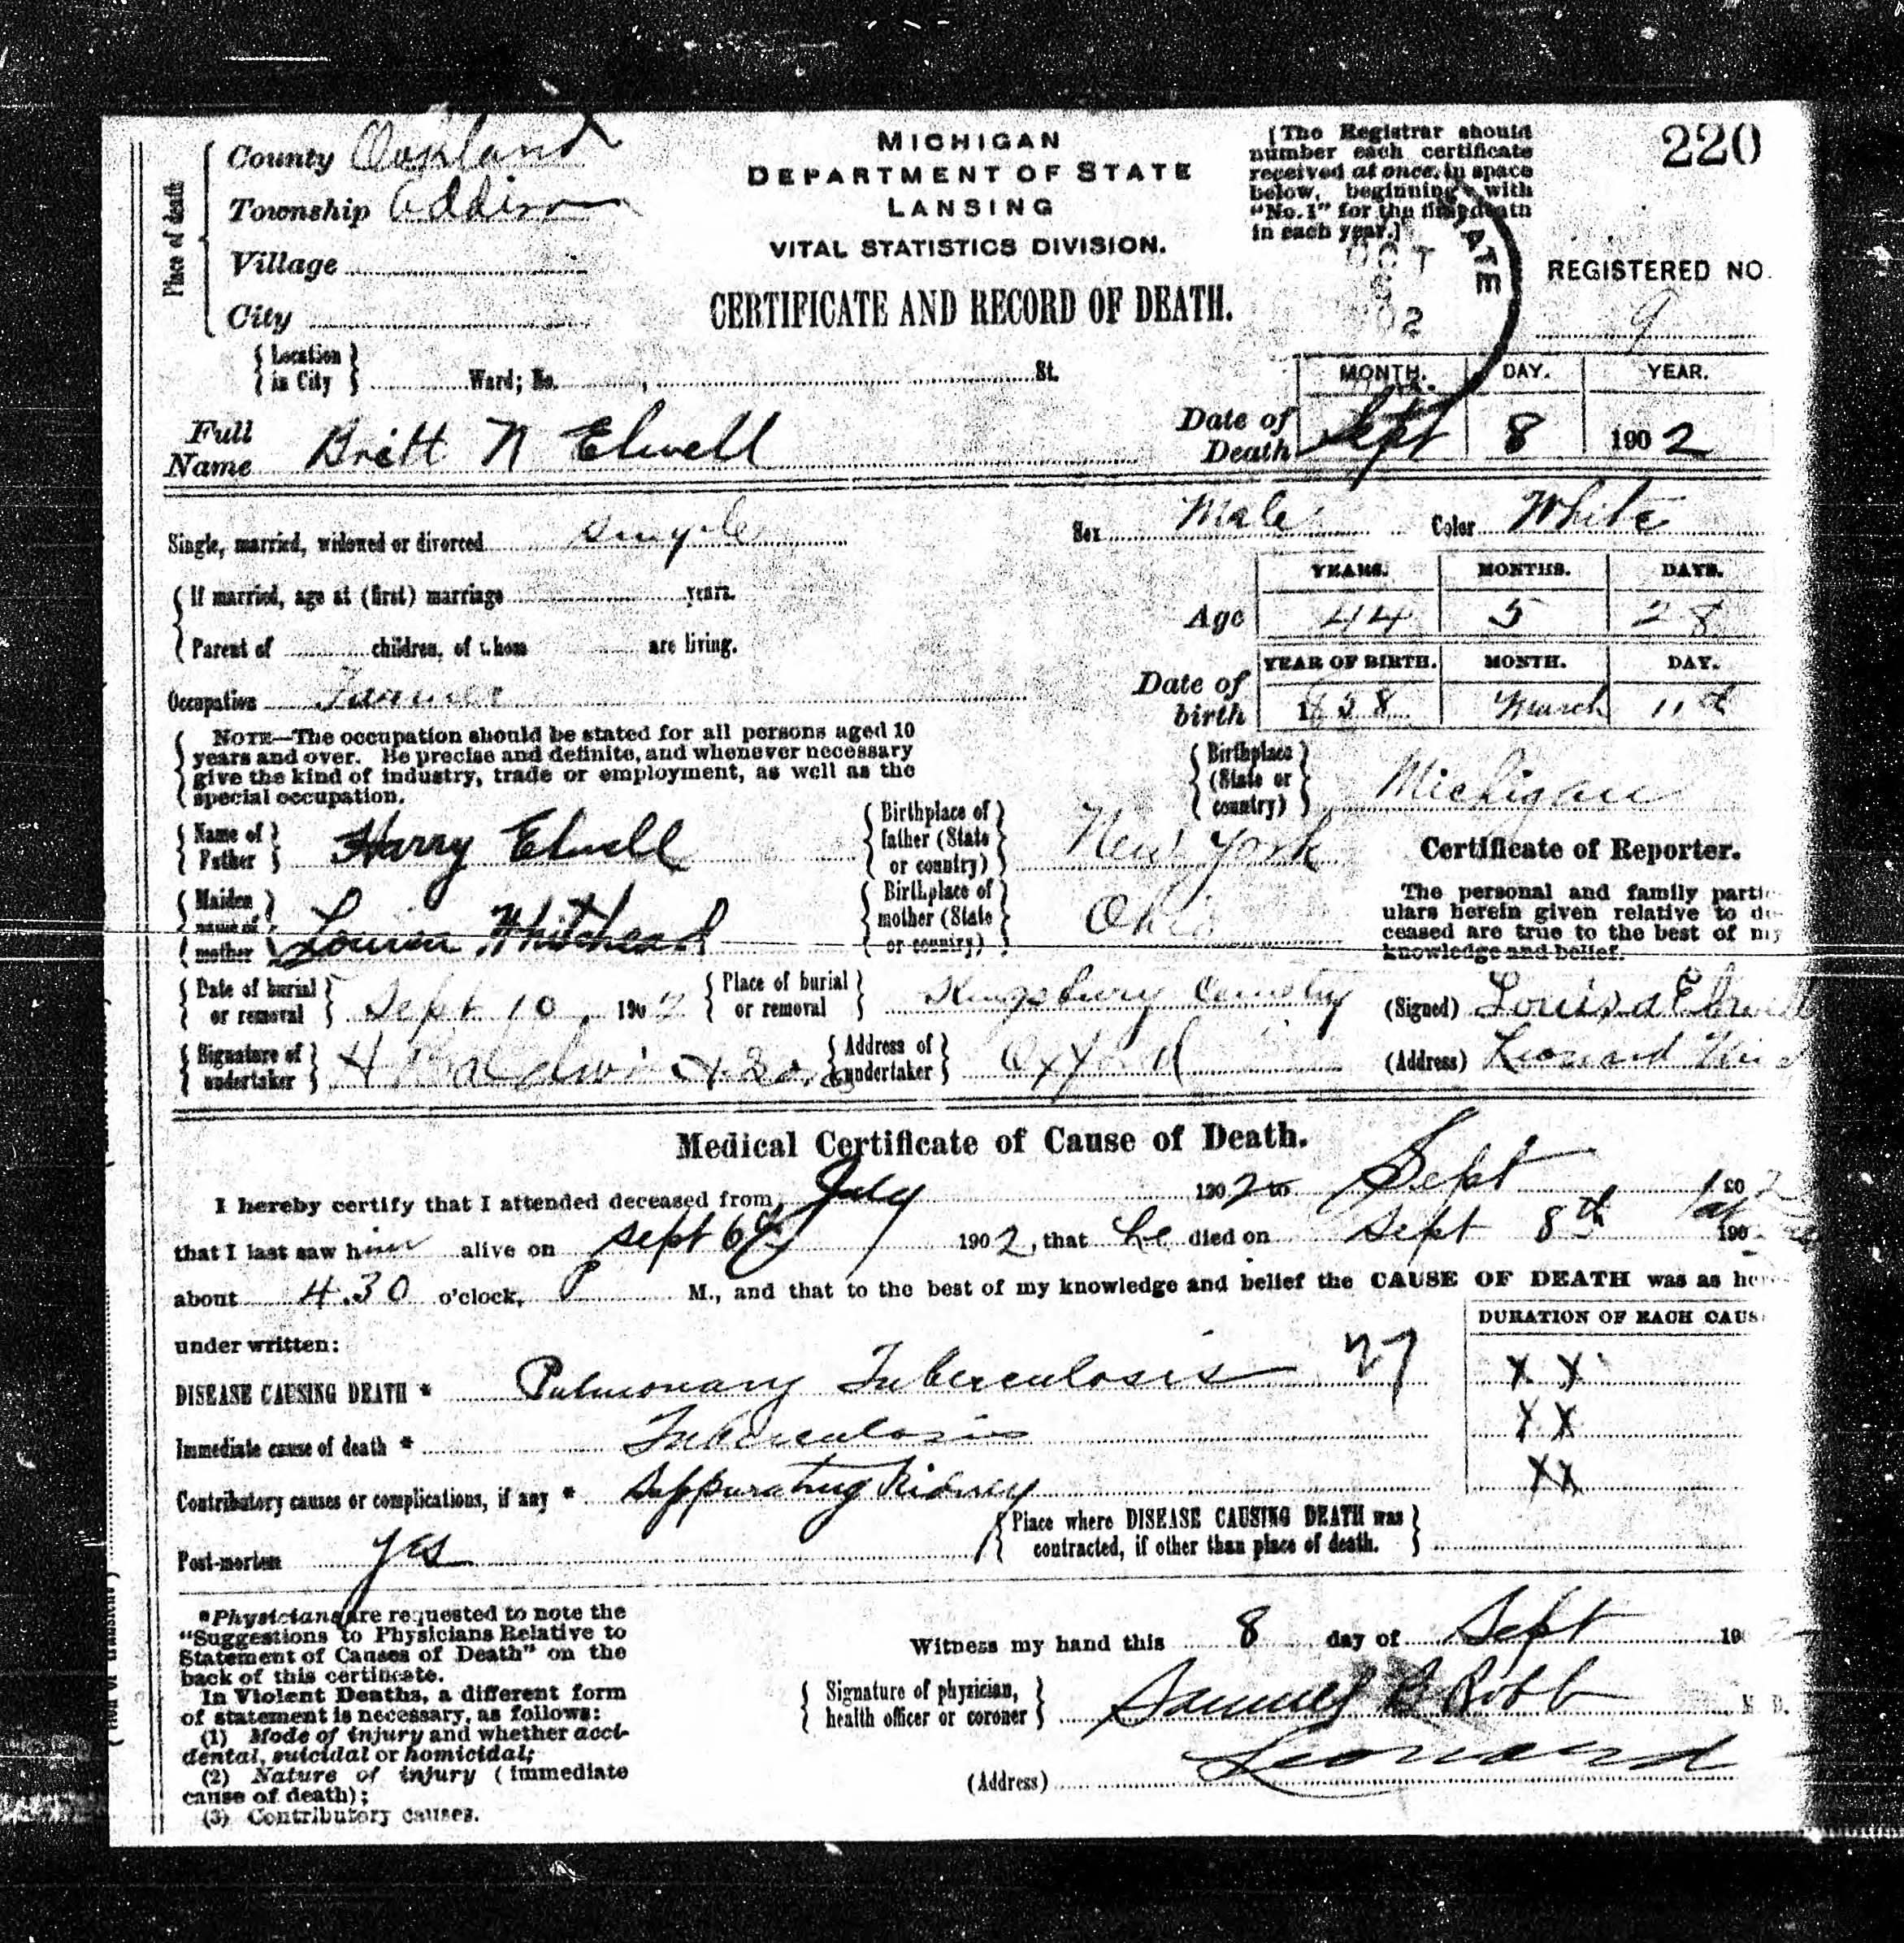 220
Place of death
County Oakland
Township Addison
Village
City
Location in City Ward; No. , St.
MICHIGAN
DEPARTMENT OF STATE
LANSING
VITAL STATISTICS DIVISION.
CERTIFICATE AND RECORD OF DEATH.
[The Registrar should
number each certificate
received at once, in space
below, beginning with
"No. 1" for the first death
in each year.]
STATE
OCT
902
REGISTERED NO.
9
Full Name Britt N Elwell
Date of Death MONTH. DAY. YEAR.
Sept 8 1902
Single, married, widowed or divorced single
Sex Male Color White
If married, age at (first) marriage years.
Parent of children, of whom are living.
Age YEARS. MONTHS. DAYS.
44 5 28
Occupation Farmer
Date of birth YEAR OF BIRTH. MONTH. DAY.
1858 March 11th
NOTE—The occupation should be stated for all persons aged 10
years and over. Be precise and definite, and whenever necessary
give the kind of industry, trade or employment, as well as the
special occupation.
Birthplace (State or country) Michigan
Name of Father Harry Elwell
Birthplace of father (State or country) New York
Maiden name of mother Louisa Whitehead
Birthplace of mother (State or country) Ohio
Certificate of Reporter.
The personal and family parti
ulars herein given relative to de-
ceased are true to the best of my
knowledge and belief.
Date of burial or removal Sept 10 1902
Place of burial or removal Kingsbury
(Signed) Louisa Elwell
Signature of undertaker H Baldwin
Address of undertaker Oxford
(Address) Leonard
Medical Certificate of Cause of Death.
I hereby certify that I attended deceased from July 1902 to Sept 1902
that I last saw him alive on Sept 6th 1902, that he died on Sept 8th 190
about 4.30 o'clock, P M., and that to the best of my knowledge and belief the CAUSE OF DEATH was as here
under written:
DURATION OF EACH CAUS
DISEASE CAUSING DEATH * Pulmonary Tuberculosis 27 X X
Immediate cause of death * Tuberculosis X X
Contributory causes or complications, if any * Suppurating Kidney XX
Post-mortem yes
Place where DISEASE CAUSING DEATH was
contracted, if other than place of death.
*Physicians are requested to note the
"Suggestions to Physicians Relative to
Statement of Causes of Death" on the
back of this certificate.
In Violent Deaths, a different form
of statement is necessary, as follows:
(1) Mode of injury and whether acci-
dental, suicidal or homicidal;
(2) Nature of injury (immediate
cause of death);
(3) Contributory causes.
Witness my hand this 8 day of Sept 1902
Signature of physician, health officer or coroner Samuel B Robb M. D.
(Address) Leonard